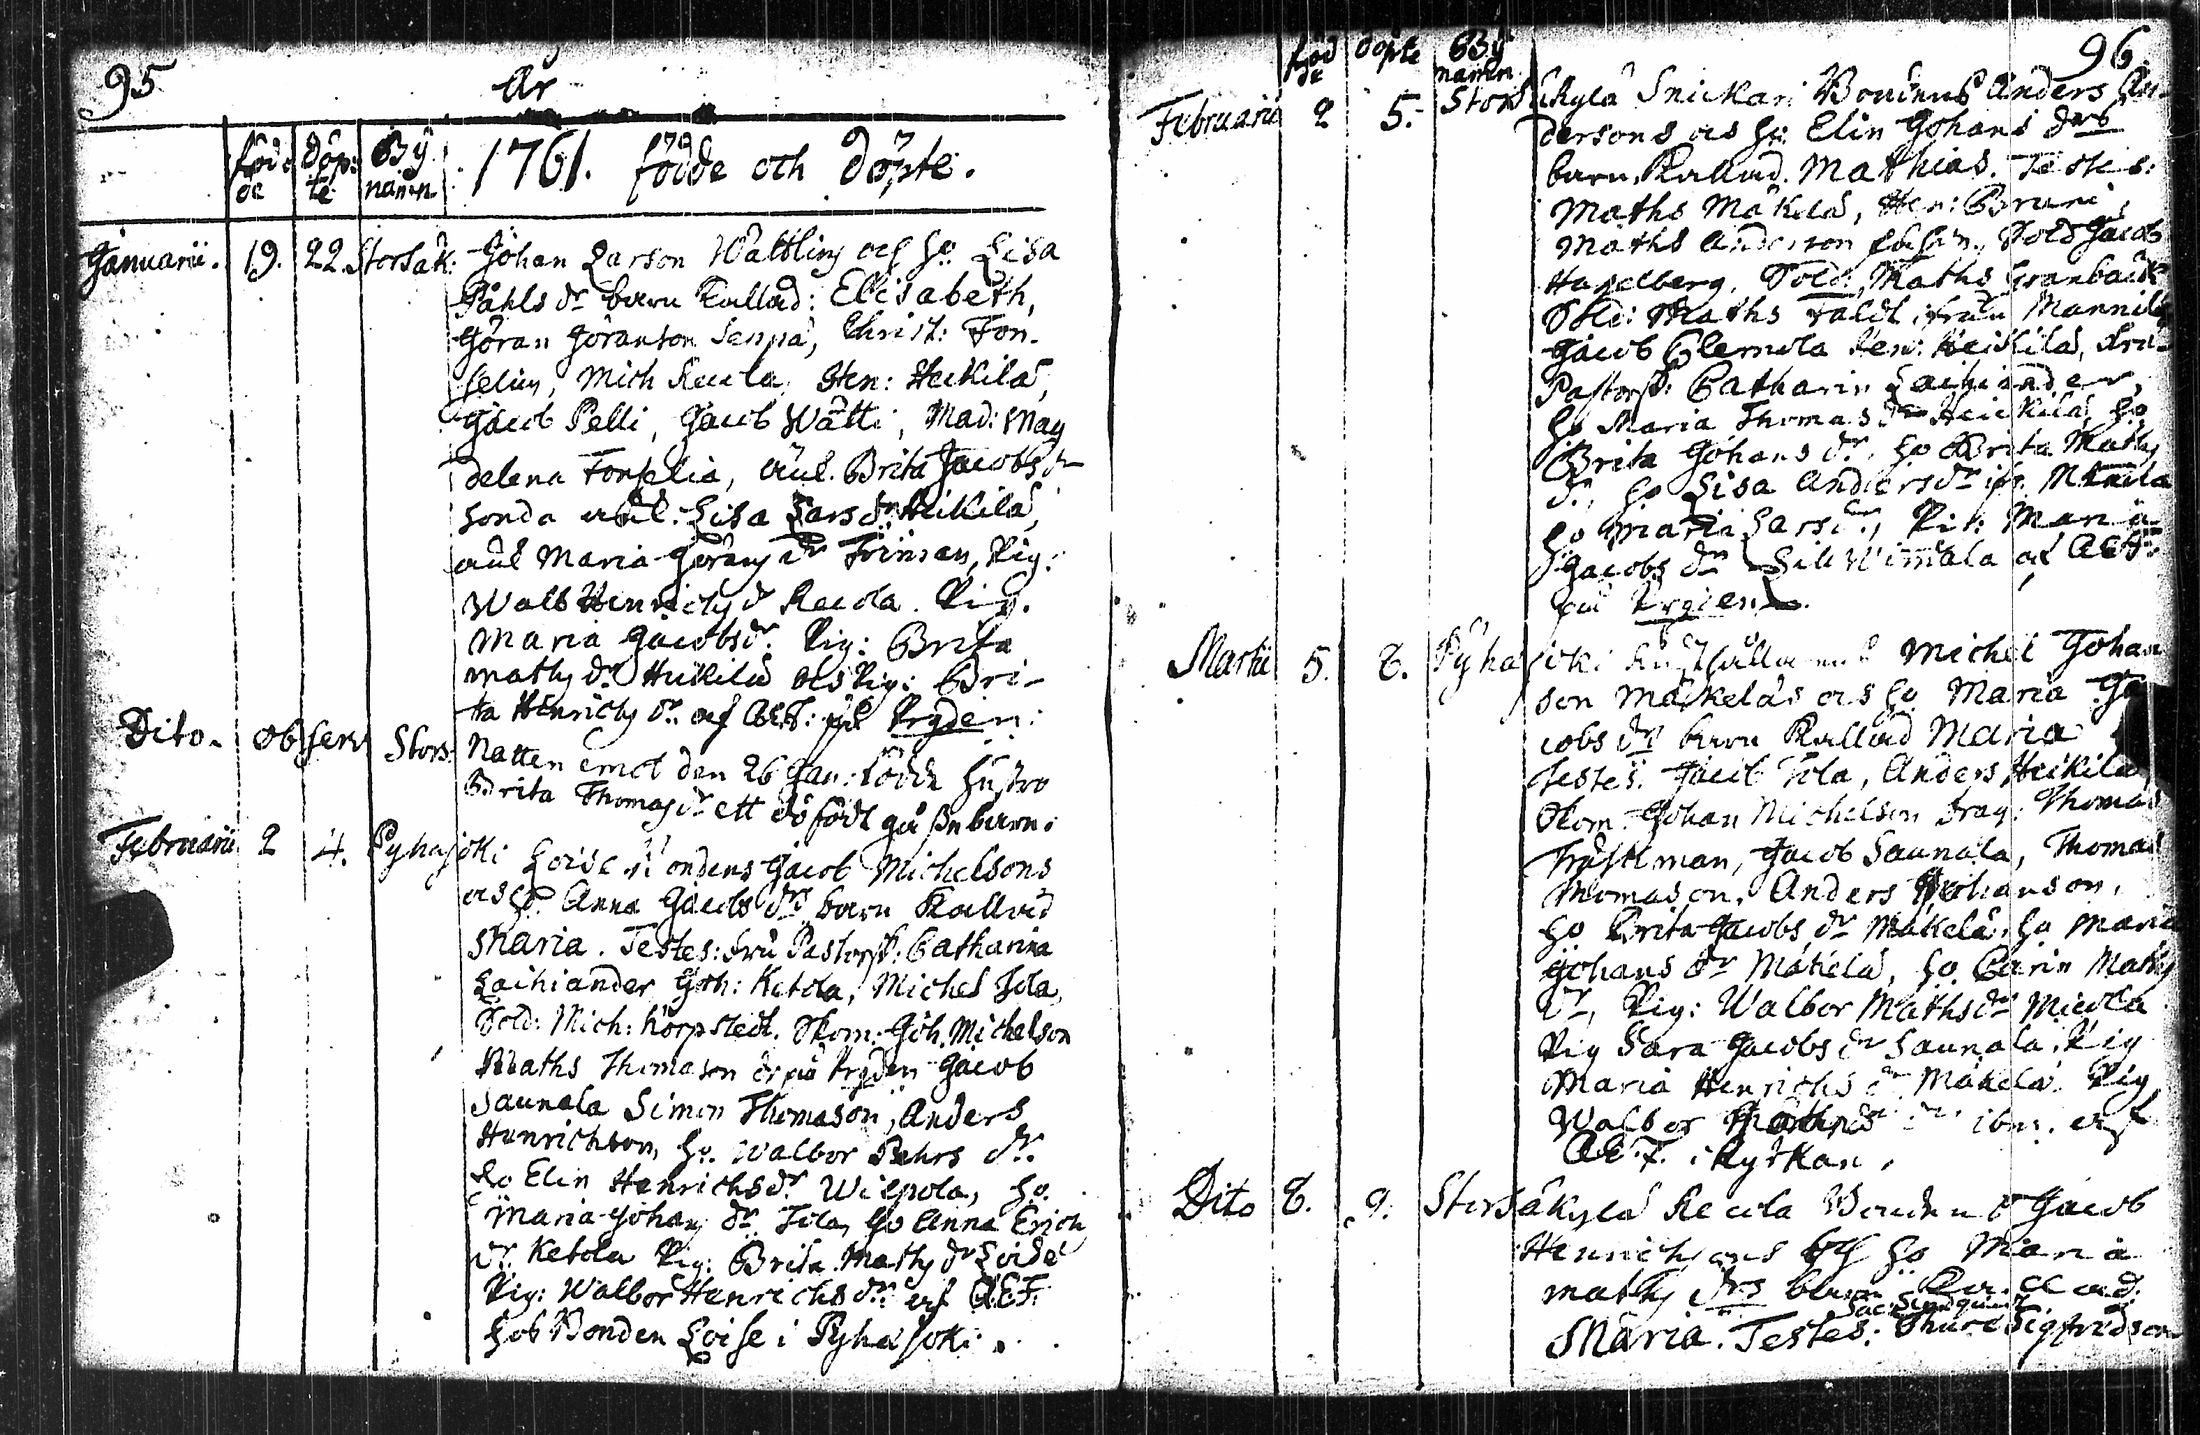 95
År
föd: de döp: te Bÿ namn 1761. födde och döpte.
Januarii. 19. 22. Storsäk: Johan Larson Wältling och ho Lisa
Påhls dr barn kallad: Elisabeth,
Göran Göranson Seppä, Christ: Fon-
selius, Mich Kecola, Hen: Heikilä,
Jacob Pelli, Jacob Wätti, Mad: Mag
delena Fonselia, äul. Brita Jacobs dr
Lisa Lars dr Heikilä,
Maria Görans dr Friman, Pig:
Walb Henrichs dr Kecola. Pig.
Maria Jacobs dr. Pig: Brita
Maths dr Heikilä och Pig: Bri-
ta Henrichs dr. af AEF: på Prgden:
Dito. observ Stors: Natten emot den 26 Jan: födde hustro
Brita Thomas dr ett dödfödt gåsse barn.
Februarii 2 4. Pyhäjoki Loise Bondens Jacob Michelsons
och ho Anna Jacobs drs barn Kallad
Maria. Testes: fru Pastorsk: Catharina
Laihiander Joh: Ketola, Michel Isla,
Sold: Mich: Korpstedt. Skom: Joh. Michelson
Maths Thomason Jacob
Saunala Simon Thomason, Anders
Henrichson, ho. Walbor Pehrs dr.
ho Elin Henrichs dr Wilpola, ho.
Maria Johans dr Isla, ho Anna Erichs
dr. Ketola Pig: Brita Maths dr Loise
Pig: Walbor Henrichs dr. af AEF.
hos Bonden Loise i Pyhäjoki.
96
född de döpte Bÿ namn
Februarii 2 5. Storsäkylä Snickari Bondens Anders An-
dersons och ho: Elin Johans drs
barn Kallad. Mathias. Testes:
Maths Mäkelä, Hen: Bruni,
Maths Anderson Sold Jacob
Haselberg, Sold: Maths Granbäck
Sold: Maths från Mannila
Jacob Clemola Hen: Heikilä, fru
Pastorsk: Catharin Laihiander,
ho Maria Thomas dr Heickilä, ho
Brita Johans dr. ho Brita Maths
dr., ho Lisa Anders dr
ho Maria Lars dr., Pig: Maria
Jacobs dr af AEF:
på Prgden.
Martii 5. 8. Pyhäjoki Michel Johan
son Mäkeläs och ho Maria Ja
cobs drs barn Kallad Maria
Testes. Jacob Isla, Anders Heikilä
Skom. Johan Michelson Drag: Thomas
Jacob Saunala, Thomas
Thomason. Anders Johanson.
ho Brita Jacobs dr Mäkelä. ho Maria
Johans dr Mäkelä, ho Carin Maths
dr, Pig: Walbor Maths dr Micola
Pig Sara Jacobs dr Saunala. Pig
Maria Henrichs dr Mäkelä. Pig
Walbor dr. ibm. af
AEF. i Kyrkan.
Dito 8. 9. Storsäkylä Kecola Bondens Jacob
Henrichsons och ho Maria
Maths drs barn Kallad.
Maria. Testes: Thure Sigfridson